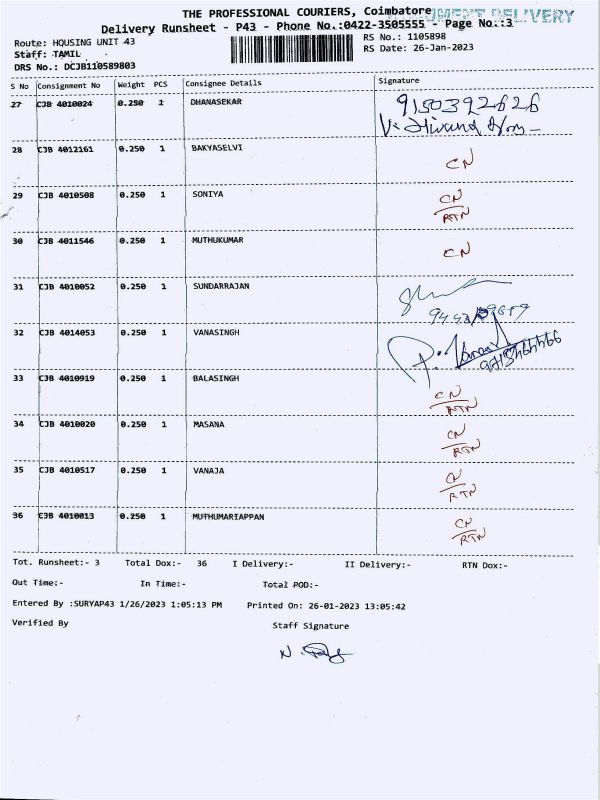 THE PROFESSIONAL COURIERS, Coimbatore
UMENT DELIVERY
Delivery Runsheet - P43 - Phone No.:0422-3505555 - Page No.:3
Route: HOUSING UNIT 43
RS No.: 1105898
Staff: TAMIL
RS Date: 26-Jan-2023
DRS No.: DCJB110589803
S No Consignment No Weight PCS Consignee Details Signature
27 CJB 4010024 0.250 1 DHANASEKAR 9150392626
28 CJB 4012161 0.250 1 BAKYASELVI CN
29 CJB 4010508 0.250 1 SONIYA CN
RTN
30 CJB 4011546 0.250 1 MUTHUKUMAR CN
31 CJB 4010052 0.250 1 SUNDARRAJAN
32 CJB 4014053 0.250 1 VANASINGH
33 CJB 4010919 0.250 1 BALASINGH CN
RTN
34 CJB 4010020 0.250 1 MASANA CN
RTN
35 CJB 4010517 0.250 1 VANAJA CN
RTN
36 CJB 4010013 0.250 1 MUTHUMARIAPPAN CN
RTN
Tot. Runsheet:- 3 Total Dox:- 36 I Delivery:- II Delivery:- RTN Dox:-
Out Time:- In Time:- Total POD:-
Entered By :SURYAP43 1/26/2023 1:05:13 PM Printed On: 26-01-2023 13:05:42
Verified By Staff Signature